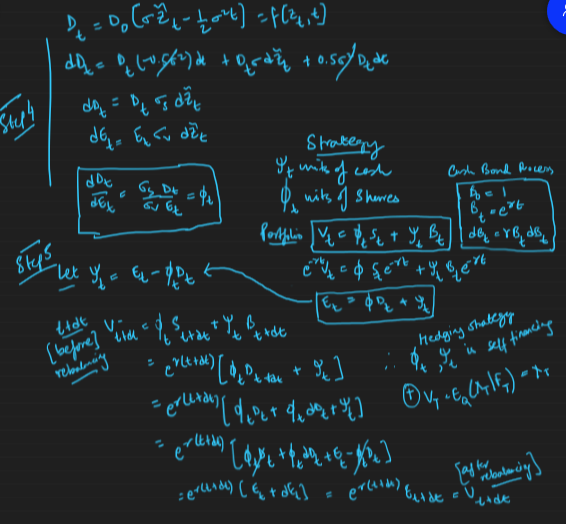 D_t = D_0 [σZ̃_t - ½σ²t] = f(z_t, t)
dD_t = D_t (-0.5σ²) dt + D_t σ dz̃_t + 0.5σ² D_t dt
Step 4
dD_t = D_t σ_s dz̃_t
dE_t = E_t σ_v dz̃_t
dD_t / dE_t = σ_s D_t / σ_v E_t = ϕ_t
Strategy
ψ_t units of cash
ϕ_t units of shares
Cash Bond Process
B_0 = 1
B_t = e^{rt}
dB_t = r B_t dB_t
Portfolio V_t = ϕ_t S_t + ψ_t B_t
e^{-rt} V_t = ϕ S_t e^{-rt} + ψ_t B_t e^{-rt}
E_t = ϕ D_t + ψ_t
Step 5
Let ψ_t = E_t - ϕ D_t
t+dt V_{t+dt} = ϕ_t S_{t+dt} + ψ_t B_{t+dt}
[before] rebalancing
= e^{r(t+dt)} [ϕ_t D_{t+dt} + ψ_t]
= e^{r(t+dt)} [ϕ_t D_t + ϕ_t dD_t + ψ_t]
= e^{r(t+dt)} [ϕ_t D_t + ϕ_t dD_t + E_t - ϕ_t D_t]
= e^{r(t+dt)} [E_t + dE_t] = e^{r(t+dt)} E_{t+dt} = V_{t+dt}
[after rebalancing]
Hedging strategy
∴ ϕ_t, ψ_t is self financing
⊕ V_T = E_Q (X_T | F_T) = X_T